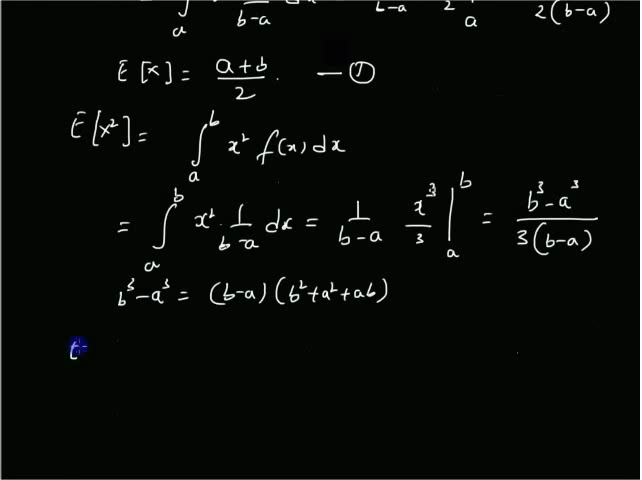 ∫ₐ b-a b-a 2 a 2(b-a)
E[x] = (a+b)/2 . — ①
E[x²] = ∫ₐᵇ x² f(x) dx
= ∫ₐᵇ x² · 1/(b-a) dx = 1/(b-a) x³/3 |ₐᵇ = (b³-a³)/(3(b-a))
b³-a³ = (b-a)(b²+a²+ab)